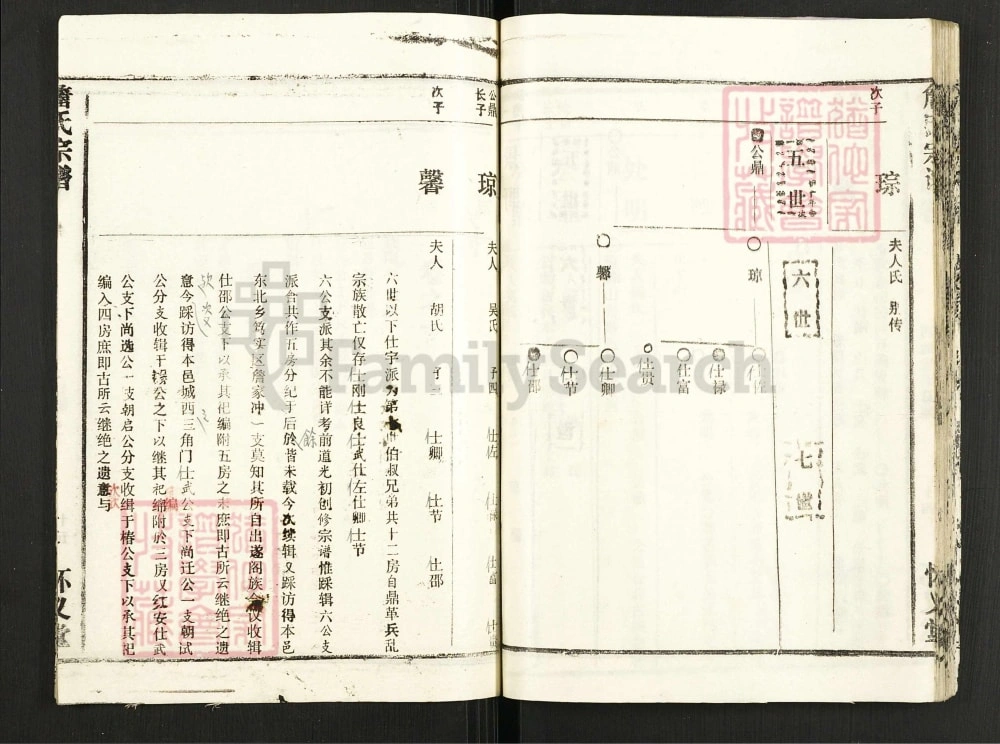 次子
琮
夫人氏 别传
五世
公鼎
六世
琼
馨
七世
仕禄
仕富
仕贵
仕卿
仕节
仕邵
怀义堂
FamilySearch
詹氏宗谱
公鼎
长子
琼
夫人 吴氏 子四 仕佐
次子
馨
夫人 胡氏 子三 仕卿 仕节 仕邵
六世以下仕字派为第七世伯叔兄弟共十二房自鼎革兵乱
宗族散亡仅存士刚士良士武仕左仕卿士节
六公支派其余不能详考前道光初创修宗谱惟踩辑六公支
派合共作五房分纪于后於皆未载今次续辑又踩访得本邑
东北乡笃实区詹家冲一支莫知其所自出遂阁族会议收辑
仕邵公支下以承其祀编附五房之末庶即古所云继绝之遗
意今踩访得本邑城西三角门士武公支下尚迁公一支朝试
公分支收辑于公之下以继其祀编附於三房又红安仕武
公支下尚选公一支朝启公分支收缉于椿公支下以承其祀
编入四房庶即古所云继绝之遗意与
怀义堂